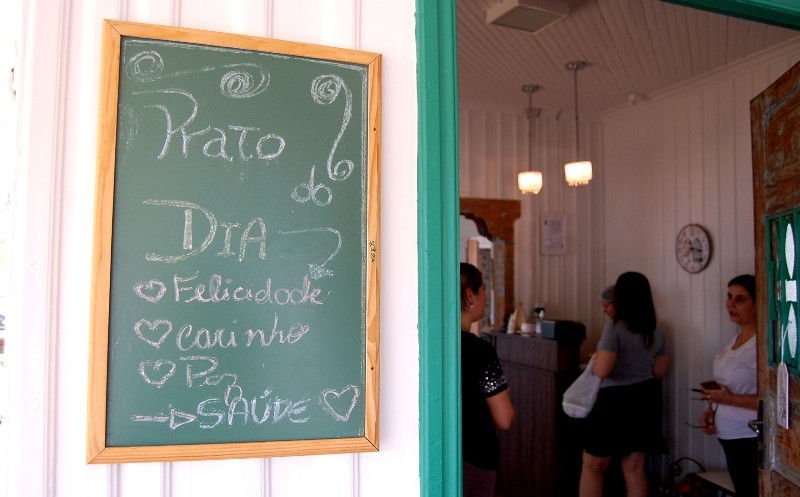 Prato
do
DIA
Felicidade
carinho
Paz
SAÚDE